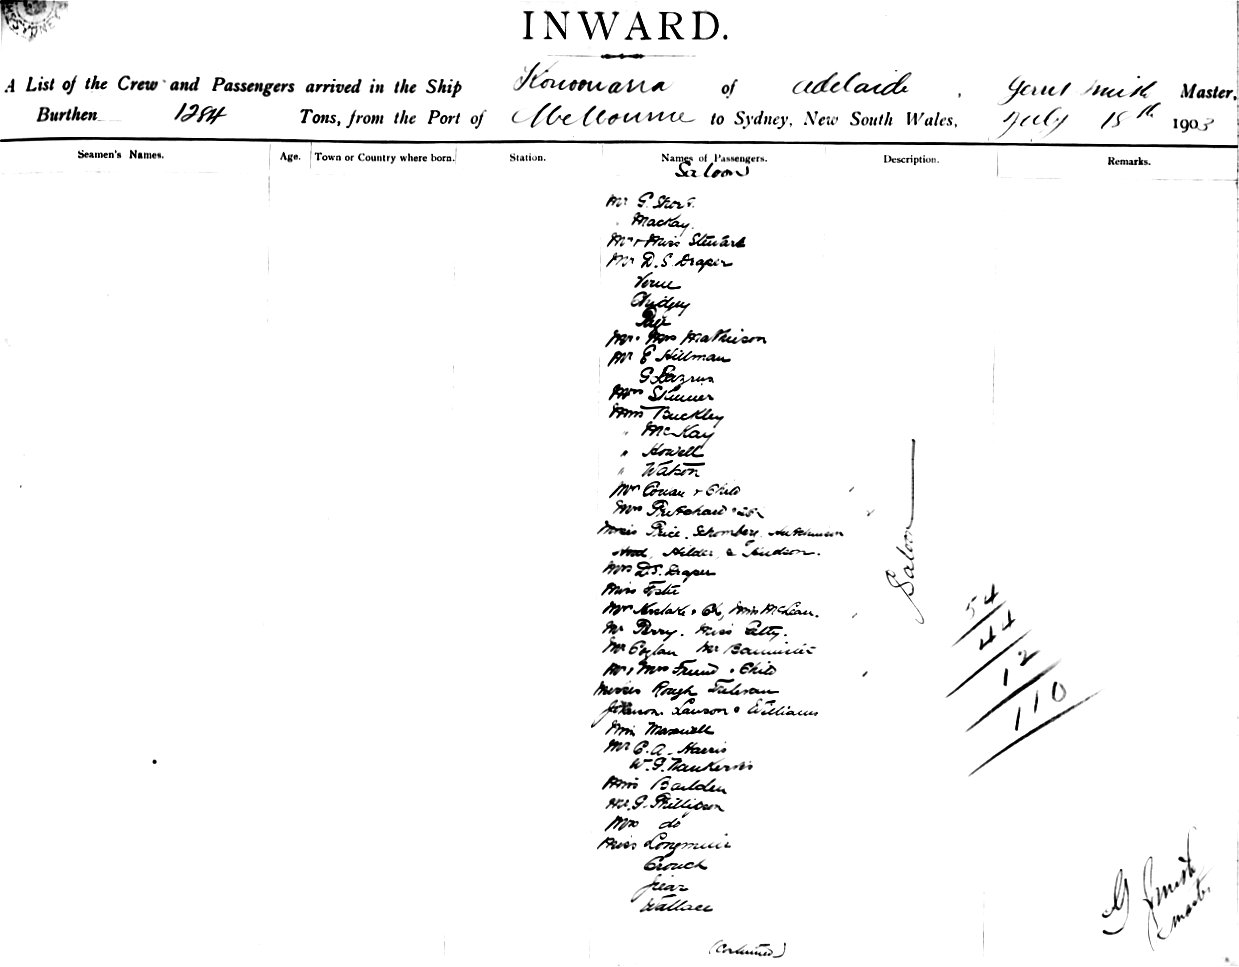 INWARD.
A List of the Crew and Passengers arrived in the Ship Konoowarra of Adelaide, Gerrit Smith Master,
Burthen 1284 Tons, from the Port of Melbourne to Sydney, New South Wales, July 18th 1903
Seamen's Names. Age. Town or Country where born. Station. Names of Passengers. Description. Remarks.
Saloon
Mr G. Short
" Mackay
Mr + Miss Stewart
Mr D. S. Draper
Verne
Chidgey
Page
Mr + Mrs Mathieson
Mr E Hillman
G Lazrus
Mrs Skinner
Miss Buckley
" McKay
" Howell
" Watson
Mrs Cowan + Child
Mrs Pritchard + 2 Ch
Misses Price, Schomberg, Hutchinson
Hilder, & Hudson.
Mrs D.S. Draper
Miss
Mrs + Ch, Miss McLean.
Mr Perry. Miss Catty.
Mr Coylan Mr Bannister
Mr + Mrs Freund + Child
Misses Rough
Johnson, Lawson + Williams
Miss Maxwell
Mr C. A. Harris
W. G.
Miss Bailden
Mr. G. Phillipson
Mrs do
Miss Longmuir
Crouch
Grear
Wallace
(Continued)
Saloon
54
44
12
110
G Smith
Master